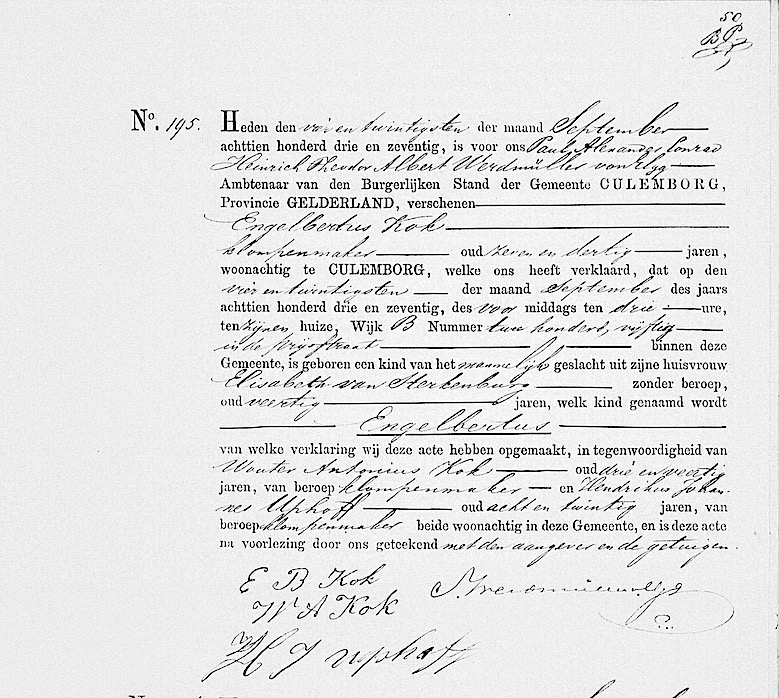 50
No. 195.
Heden den vier en twintigsten der maand September
achttien honderd drie en zeventig, is voor ons Paul Alexander Conrad
Heinrich Theodor Albert Werdmüller von Elgg
Ambtenaar van den Burgerlijken Stand der Gemeente CULEMBORG,
Provincie GELDERLAND, verschenen
Engelbertus Kok
klompenmaker oud zeven en dertig jaren,
woonachtig te CULEMBORG, welke ons heeft verklaard, dat op den
vier en twintigsten der maand September des jaars
achttien honderd drie en zeventig, des voor middags ten drie ure,
ten zijnen huize, Wijk B Nummer twee honderd, vijftig
in de Prijsstraat binnen deze
Gemeente, is geboren een kind van het mannelijk geslacht uit zijne huisvrouw
Elisabeth van Sterkenburg zonder beroep,
oud veertig jaren, welk kind genaamd wordt
Engelbertus
van welke verklaring wij deze acte hebben opgemaakt, in tegenwoordigheid van
Wouter Antonius Kok oud drie en veertig
jaren, van beroep klompenmaker en Hendrikus Johan-
nes Uphoff oud acht en twintig jaren, van
beroep klompenmaker beide woonachtig in deze Gemeente, en is deze acte
na voorlezing door ons geteekend met den aangever en de getuigen.
E B Kok
W A Kok
H J Uphoff